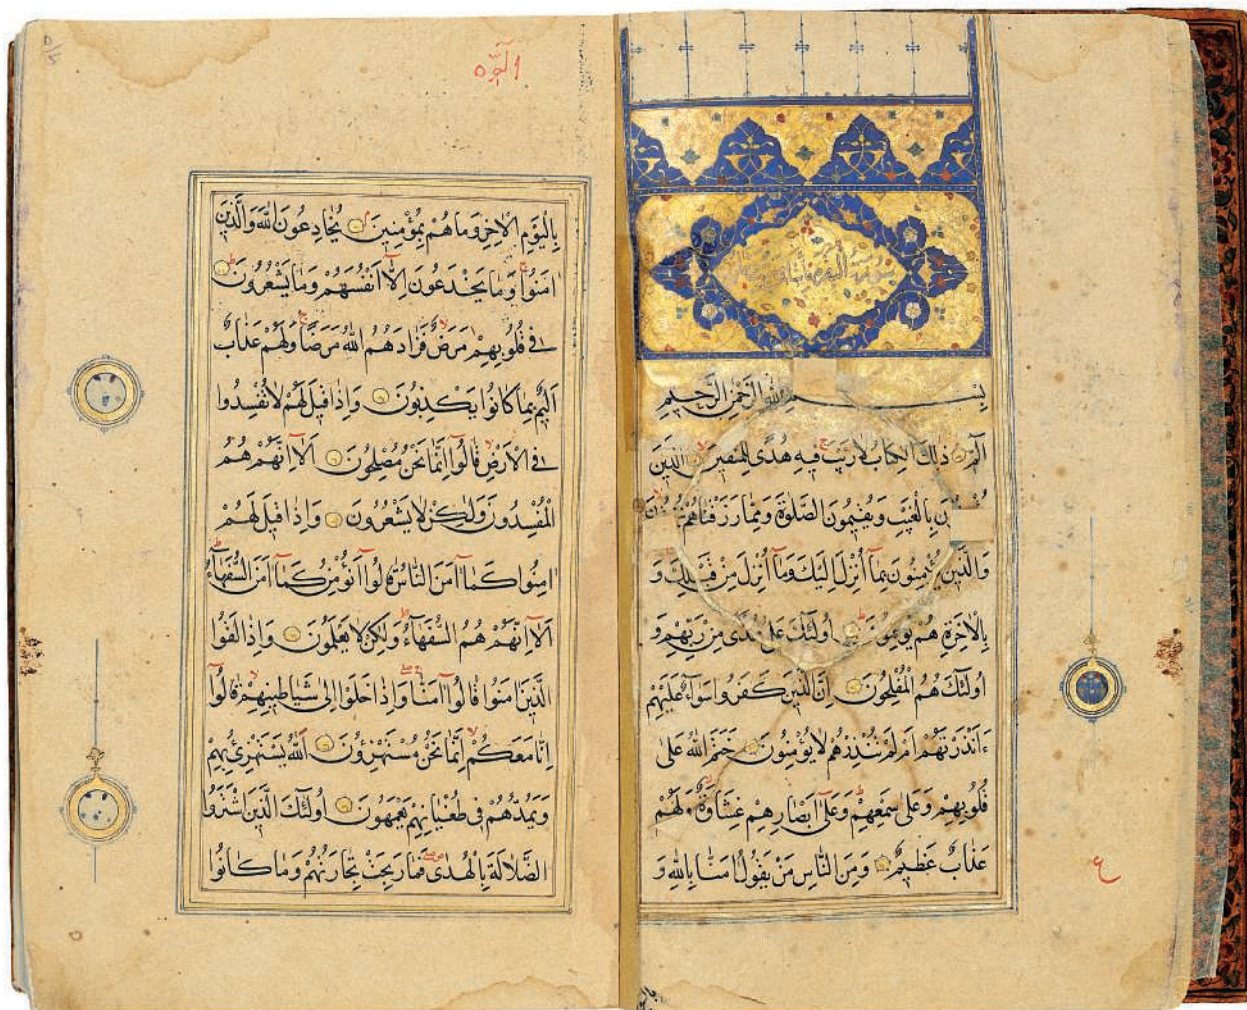 بِسْمِ اللهِ الرَّحْمٰنِ الرَّحِيمِ
الٓمٓ ذٰلِكَ الْكِتَابُ لَا رَيْبَ فِيهِ هُدًى لِلْمُتَّقِينَ الَّذِينَ
بِالْغَيْبِ وَيُقِيمُونَ الصَّلٰوةَ وَمِمَّا رَزَقْنَاهُمْ
وَالَّذِينَ يُؤْمِنُونَ بِمَٓا أُنْزِلَ اِلَيْكَ وَمَٓا أُنْزِلَ مِنْ قَبْلِكَ وَ
بِالْاٰخِرَةِ هُمْ يُوقِنُونَ اُولٰٓئِكَ عَلٰى هُدًى مِنْ رَبِّهِمْ وَ
اُولٰٓئِكَ هُمُ الْمُفْلِحُونَ اِنَّ الَّذِينَ كَفَرُوا سَوَٓاءٌ عَلَيْهِمْ
ءَاَنْذَرْتَهُمْ اَمْ لَمْ تُنْذِرْهُمْ لَا يُؤْمِنُونَ خَتَمَ اللهُ عَلٰى
قُلُوبِهِمْ وَعَلٰى سَمْعِهِمْ وَعَلٰٓى اَبْصَارِهِمْ غِشَاوَةٌ وَلَهُمْ
عَذَابٌ عَظِيمٌ وَمِنَ النَّاسِ مَنْ يَقُولُ اٰمَنَّا بِاللهِ وَ
ع
بِالْيَوْمِ الْاٰخِرِ وَمَا هُمْ بِمُؤْمِنِينَ يُخَادِعُونَ اللهَ وَالَّذِينَ
اٰمَنُوا وَمَا يَخْدَعُونَ اِلَّٓا اَنْفُسَهُمْ وَمَا يَشْعُرُونَ
فِي قُلُوبِهِمْ مَرَضٌ فَزَادَهُمُ اللهُ مَرَضًا وَلَهُمْ عَذَابٌ
اَلِيمٌ بِمَا كَانُوا يَكْذِبُونَ وَاِذَا قِيلَ لَهُمْ لَا تُفْسِدُوا
فِي الْاَرْضِ قَالُٓوا اِنَّمَا نَحْنُ مُصْلِحُونَ اَلَٓا اِنَّهُمْ هُمُ
الْمُفْسِدُونَ وَلٰكِنْ لَا يَشْعُرُونَ وَاِذَا قِيلَ لَهُمْ
اٰمِنُوا كَمَٓا اٰمَنَ النَّاسُ قَالُٓوا اَنُؤْمِنُ كَمَٓا اٰمَنَ السُّفَهَٓاءُ
اَلَٓا اِنَّهُمْ هُمُ السُّفَهَٓاءُ وَلٰكِنْ لَا يَعْلَمُونَ وَاِذَا لَقُوا
الَّذِينَ اٰمَنُوا قَالُٓوا اٰمَنَّا وَاِذَا خَلَوْا اِلٰى شَيَاطِينِهِمْ قَالُٓوا
اِنَّا مَعَكُمْ اِنَّمَا نَحْنُ مُسْتَهْزِؤُنَ اَللهُ يَسْتَهْزِئُ بِهِمْ
وَيَمُدُّهُمْ فِي طُغْيَانِهِمْ يَعْمَهُونَ اُولٰٓئِكَ الَّذِينَ اشْتَرَوُا
الضَّلَالَةَ بِالْهُدٰى فَمَا رَبِحَتْ تِجَارَتُهُمْ وَمَا كَانُوا